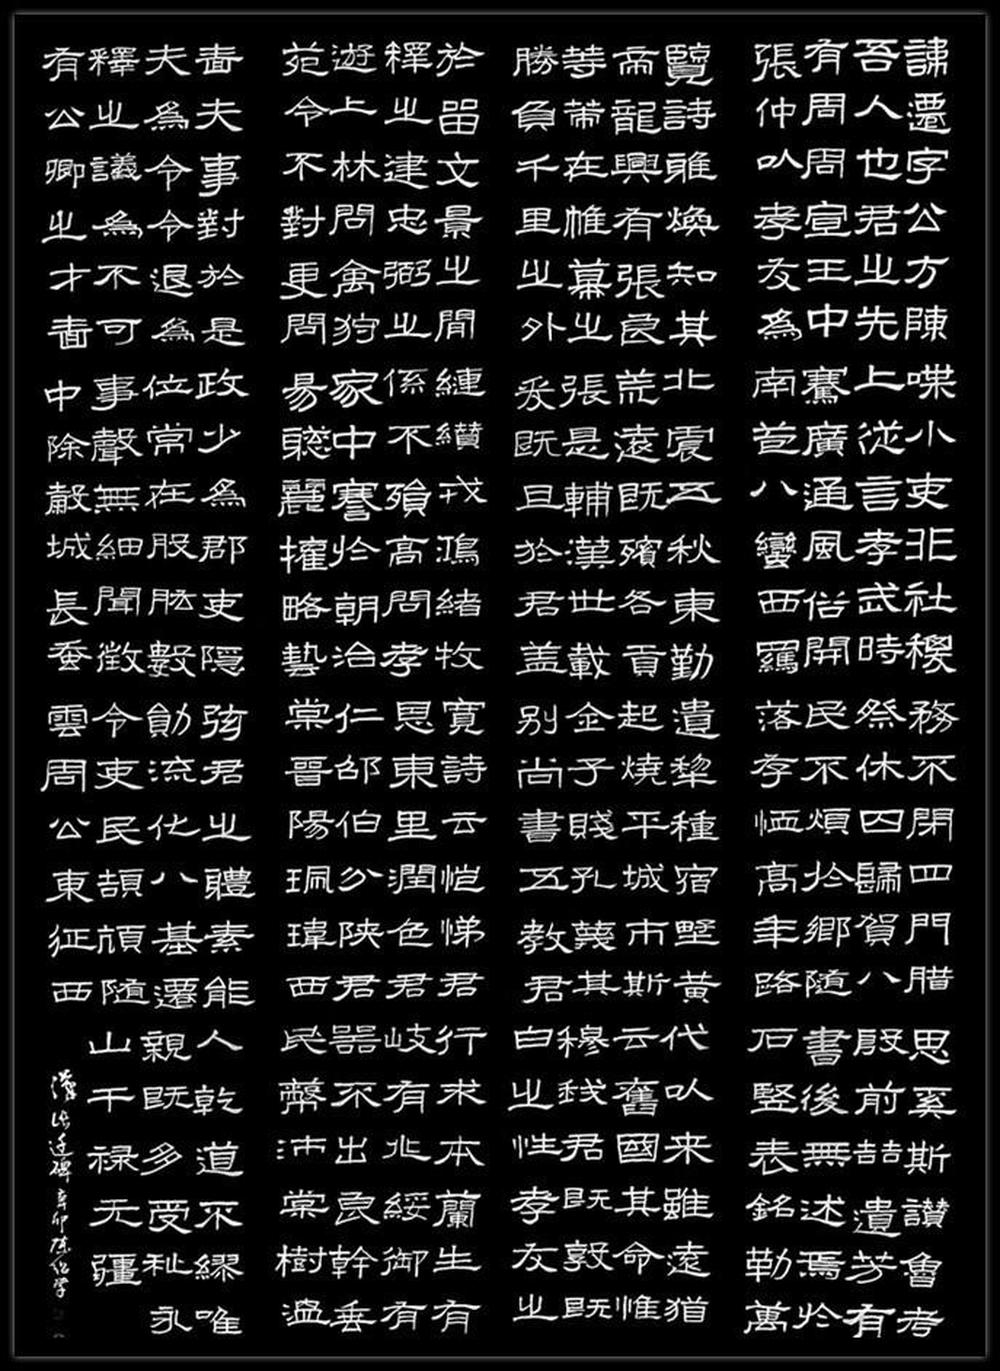 諌遷字公方陳喋小吏非社稷務不閉四門腊思奚斯讃魯考
吾人也君之先上從言孝武時祭休四歸賀八殷前喆遺芳有
有周周宣王中騫廣通風俗開民不煩於鄉隨書後無述焉於
張仲以孝友為南苞八蠻西羈落存恤高年路石竪表銘勒萬
覽詩雅煥知其北震五狄東勤遺犂種宿野黃代以来雖遠猶
帝龍興有張良荒遠既殯各貢起燒平城市斯云舊國其命惟
等策在帷幕之張是輔漢世載金子賤孔蔑其穆我君既敦既
勝負千里之外爰既且於君蓋別尚書五教君白之性孝友之
於留文景之間纏纘戎鴻緒牧寬詩云愷悌君行求本蘭生有
釋之建忠弼之係不殞高問孝恩東里潤色君岐有兆綏御有
遊上林問禽狩家中謇於朝治仁邵伯分陝君器不出良幹垂
苑令不對更問昜聦麗㩁略藝棠晉陽珮瑋西民幣沛棠樹温
嗇夫事對於是政少為郡吏隱弦君之體素能人乾道不繆唯
夫為令令退為位常在股肱數勛流化八基遷親既多受秘永
釋之議為不可事聲無細聞徵令吏民頡頏隨山干祿无疆
有公卿之才嗇中除糓城長蚕雲周公東征西
漢張迁碑辛卯陈